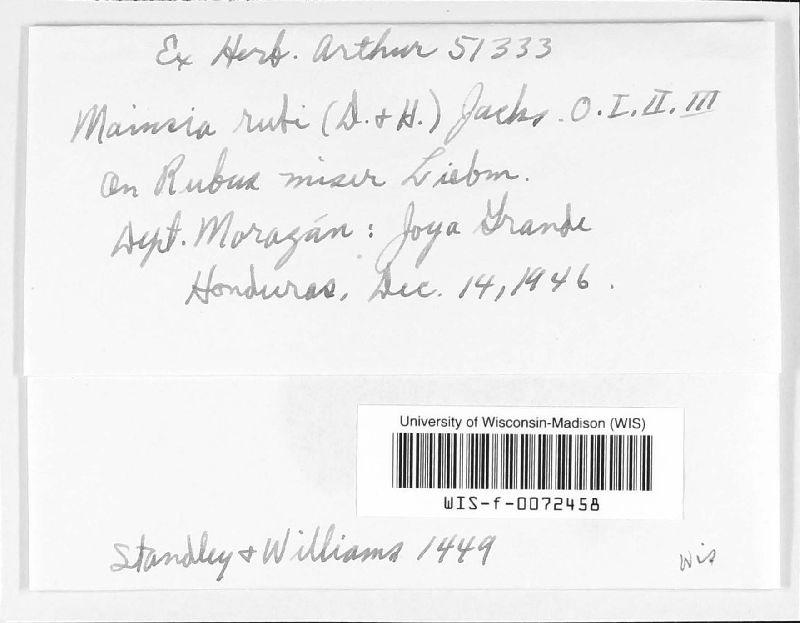 Ex Herb. Arthur 51333
Mainsia rubi (D. & H.) Jacks. O. I. II. III
On Rubus miser Liebm.
Dept. Morazán : Joya Grande
Honduras, Dec. 14, 1946.
University of Wisconsin-Madison (WIS)
WIS-f-0072458
Standley & Williams 1449
Wis